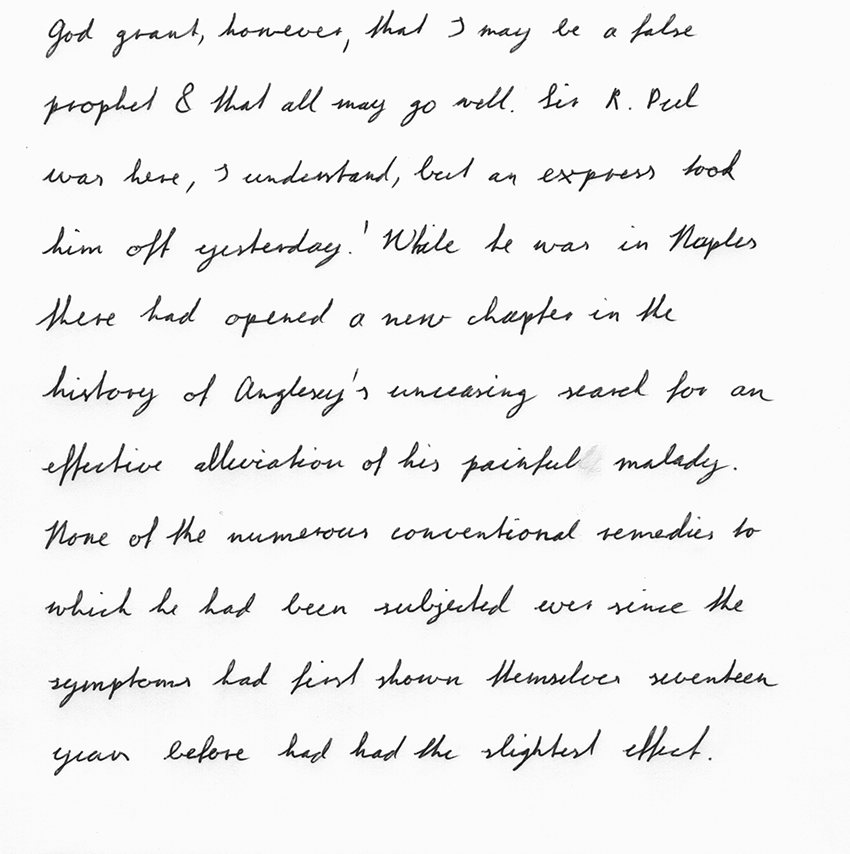 God grant, however, that I may be a false
prophet & that all may go well. Sir R. Peel
was here, I understand, but an express took
him off yesterday.' While he was in Naples
there had opened a new chapter in the
history of Anglesey's unceasing search for an
effective alleviation of his painful malady.
None of the numerous conventional remedies to
which he had been subjected ever since the
symptoms had first shown themselves seventeen
years before had had the slightest effect.